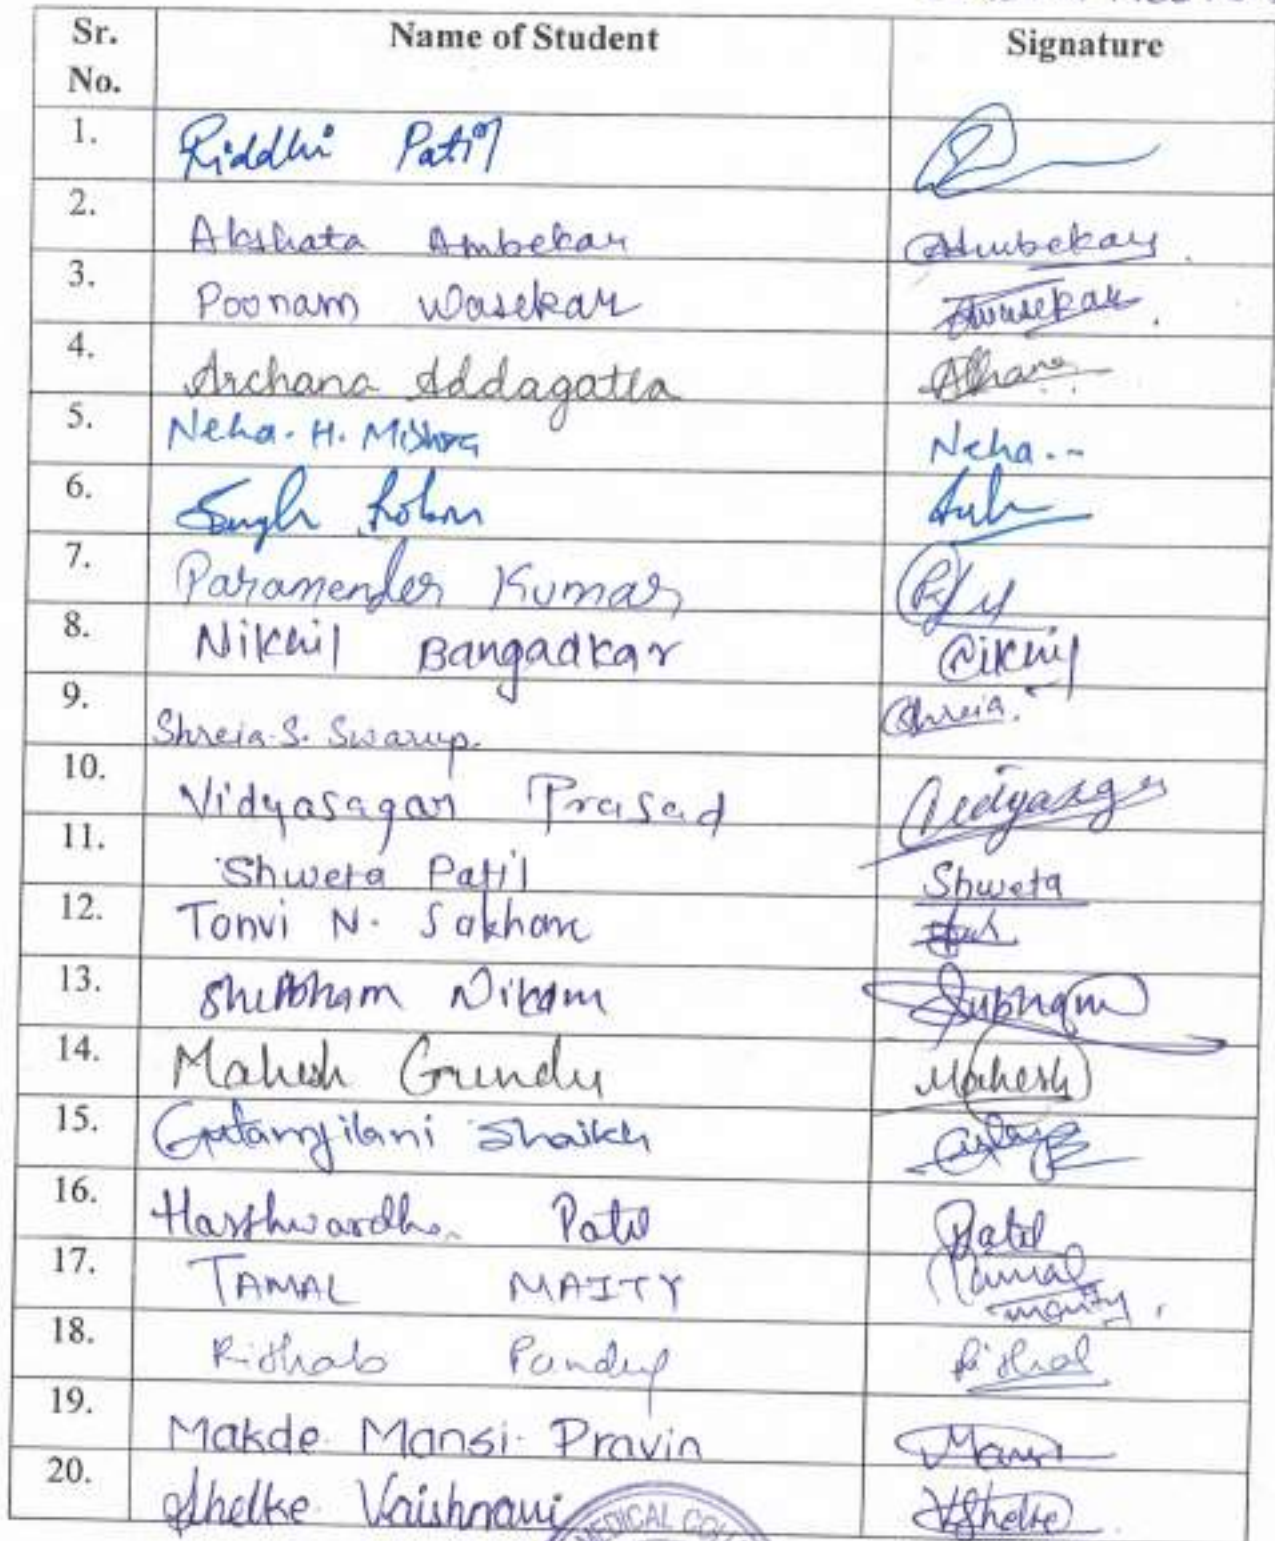 Sr. No. Name of Student Signature
1. Riddhi Patil
2. Akshata Ambekar Ambekar
3. Poonam Wasekar Wasekar
4. Archana Addagatla
5. Neha. H. Mishra Neha..
6. Singh
7. Paramender Kumar
8. Nikhil Bangadkar Nikhil
9. Shreia.S. Swarup. Shreia.
10. Vidyasagar Prasad Vidyasagar
11. Shweta Patil Shweta
12. Tonvi N. Sakhare
13. Shubham Nikam Shubham
14. Mahesh Gundu Mahesh
15. Shaikh
16. Harshwardhan Patil Patil
17. TAMAL MAITY Tamal Maity.
18. Rishab Pandey Rishab
19. Makde Mansi Pravin Mansi
20. Shelke Vaishnavi VShelke
MEDICAL